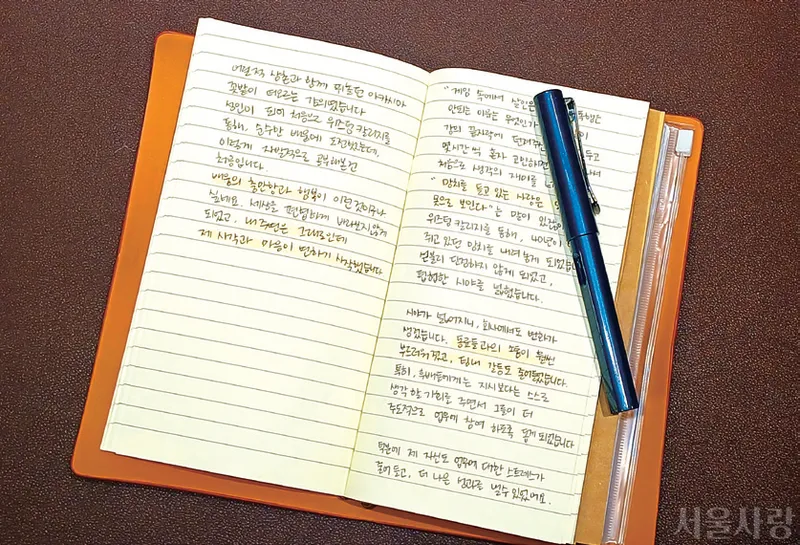 어릴적 삼촌과 함께 뛰놀던 아카시아
꽃밭이 떠오르는 강의였습니다
성인이 되어 처음으로 위즈덤 칼리지를
통해, 순수한 배움에 도전했는데,
이렇게 자발적으로 공부해본건
처음입니다.
배움의 충만함과 행복이 이런 것이구나
싶네요. 세상을 편협하게 바라보지않게
되었고, 내 주변은 그대로인데
제 시각과 마음이 변하기 시작했습니다
"게임 속에서 살인은
안되는 이유는 무엇인가
강의 끝자락에 던져주
몇시간 씩 혼자 고민하면
처음으로 생각의 재미를
"망치를 들고 있는 사람은
못으로 보인다"는 말이 있
위즈덤 칼리지를 통해, 40년이
쥐고 있던 망치를 내려 놓게 되었습
섣불리 단정하지 않게 되었고,
편협한 시야를 넓혔습니다.
시야가 넓어지니, 회사에서도 변화가
생겼습니다. 동료들과의 소통이 훨씬
부드러워졌고, 팀내 갈등도 줄어들었습니다.
특히, 후배들에게는 지시보다는 스스로
생각할 기회를 주면서 그들이 더
주도적으로 업무에 참여 하도록 돕게 되었습니다
덕분에 제 자신도 업무에 대한 스트레스가
줄어 들고, 더 나은 성과를 낼수 있었어요.
서울사랑